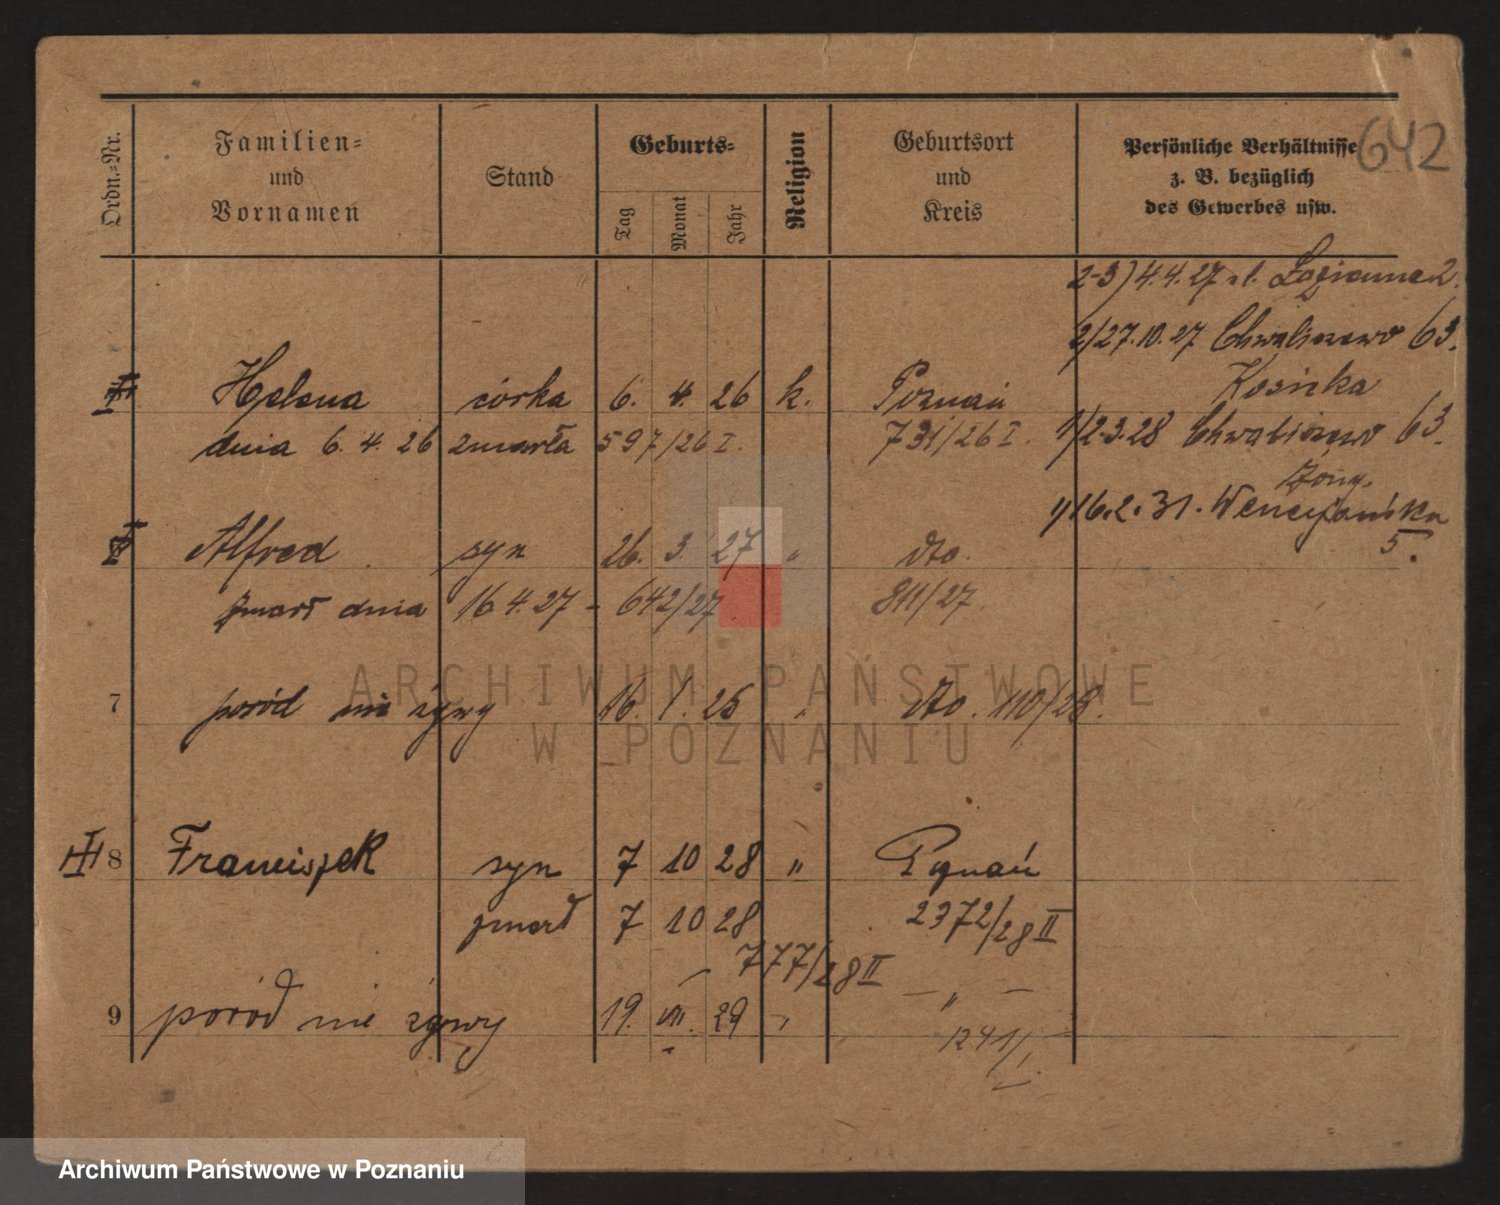 642
Ordn.-Nr.
Familien-
und
Vornamen
Stand
Geburts-
Tag
Monat
Jahr
Religion
Geburtsort
und
Kreis
Persönliche Verhältnisse
z. B. bezüglich
des Gewerbes usw.
2-3) 4.4.27
2/27.10.27 Chwaliszewo 63.
Helena córka 6. 4. 26 k. Poznań
Kosicka
dnia 6. 4. 26 zmarła 597/26 I. 731/26 I.
1/2.3.28 Chwaliszewo 63.
1/16.2.31.
5.
Alfred syn 26. 3. 27 " dto.
zmarł dnia 16 4. 27 - 642/27 811/27
7 poród nie żywy 16. 1. 25 " dto. 110/25.
8 Franciszek syn 7 10 28 " Poznań
zmarł 7 10 28 2372/28 II
777/28 II
9 poród nie żywy 19. VII. 29 " — " —
1241/I.
ARCHIWUM PAŃSTWOWE
W POZNANIU
Archiwum Państwowe w Poznaniu